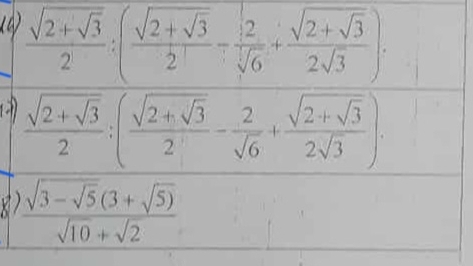 16) \frac{\sqrt{2+\sqrt{3}}}{2} : \left( \frac{\sqrt{2+\sqrt{3}}}{2} - \frac{2}{\sqrt{6}} + \frac{\sqrt{2+\sqrt{3}}}{2\sqrt{3}} \right).
17) \frac{\sqrt{2+\sqrt{3}}}{2} : \left( \frac{\sqrt{2+\sqrt{3}}}{2} - \frac{2}{\sqrt{6}} + \frac{\sqrt{2+\sqrt{3}}}{2\sqrt{3}} \right).
8) \frac{\sqrt{3-\sqrt{5}}(3+\sqrt{5})}{\sqrt{10}+\sqrt{2}}